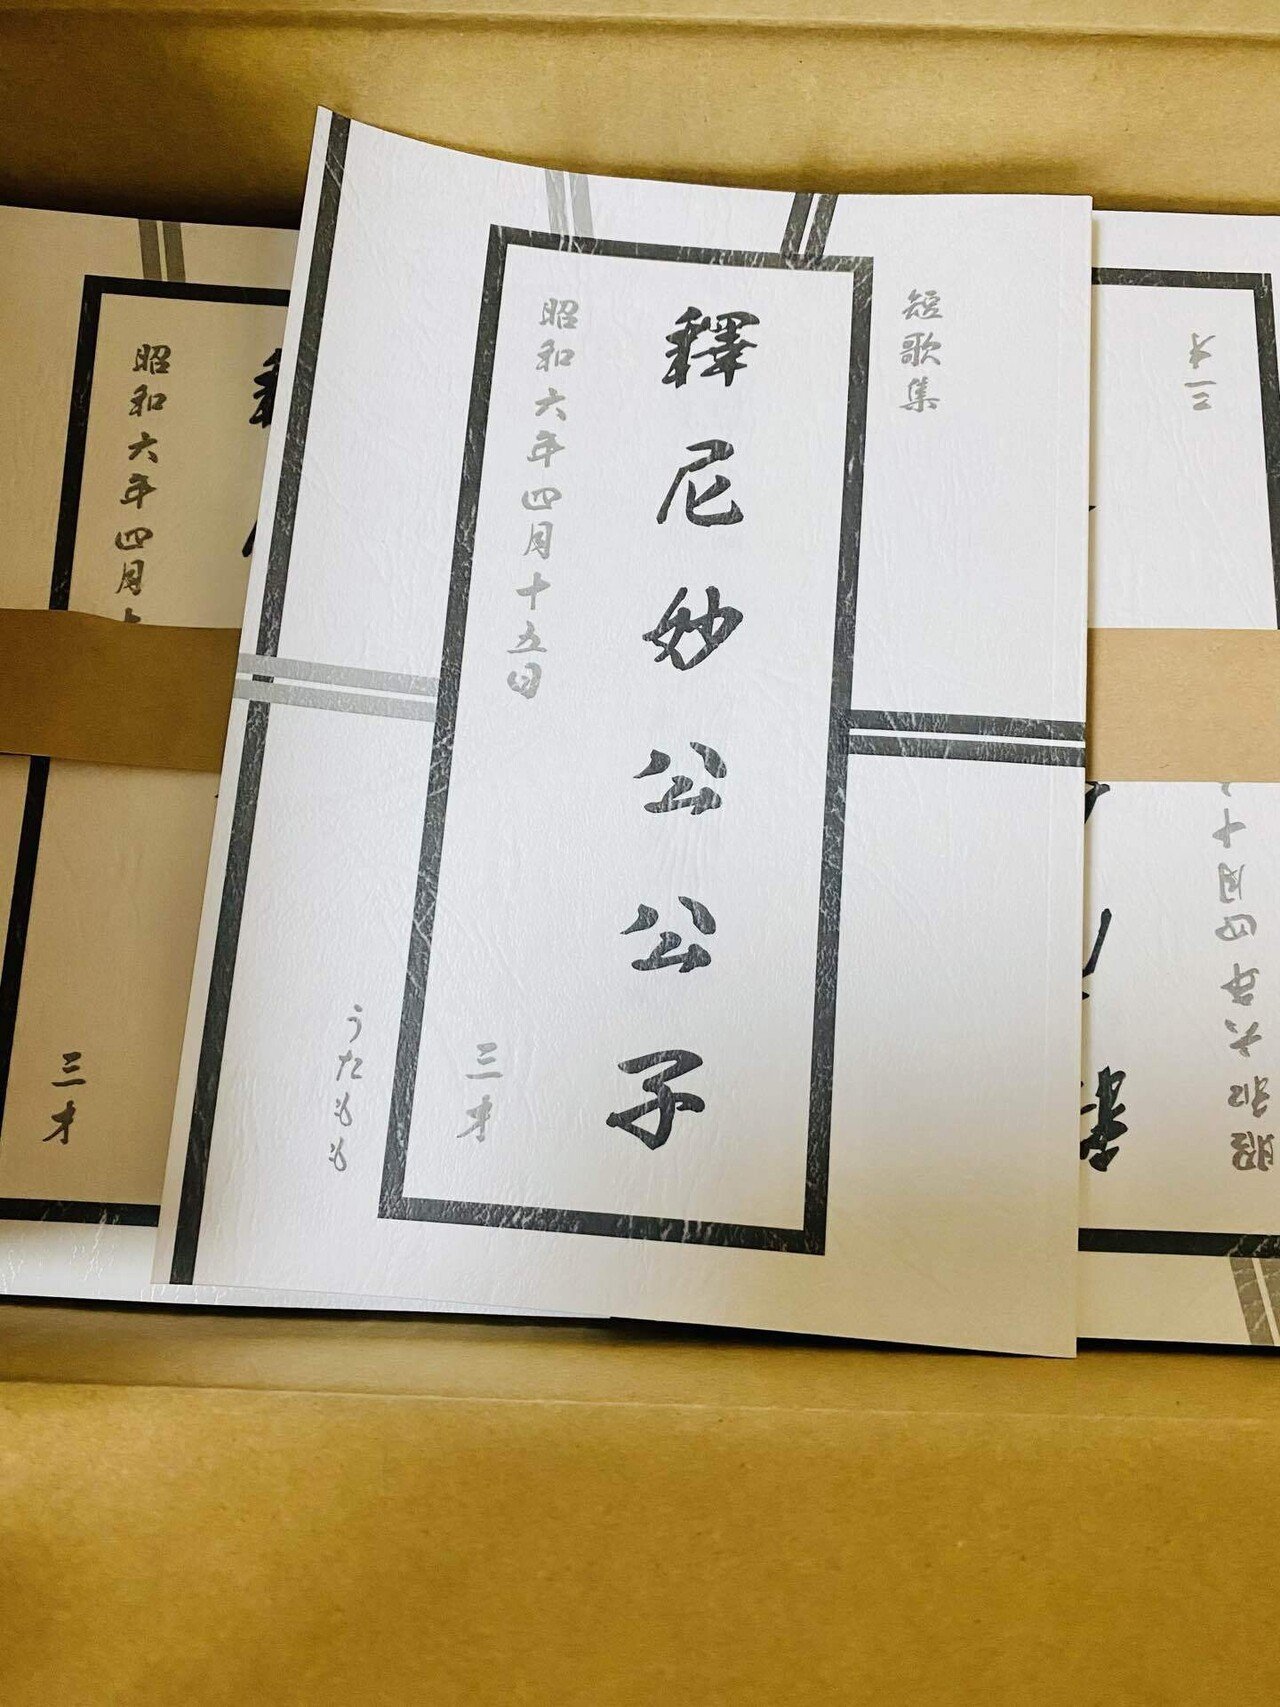 短歌集
釋尼妙公公子
昭和六年四月十五日
三才
うたもも
昭和六年四月十
三才
三才
十
昭和六年四月十
釋